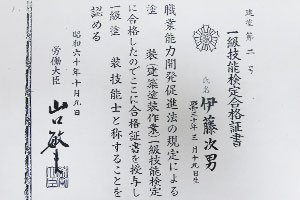 建塗第二号
一級技能検定合格証書
氏名 伊藤次男
昭三十年三月十九日生
職業能力開発促進法の規定による
塗装(建築塗装作業)一級技能検定
に合格したのでここに合格証書を授与し
一級塗装技能士と称することを
認める
昭和六十年十月九日
労働大臣
山口敏夫